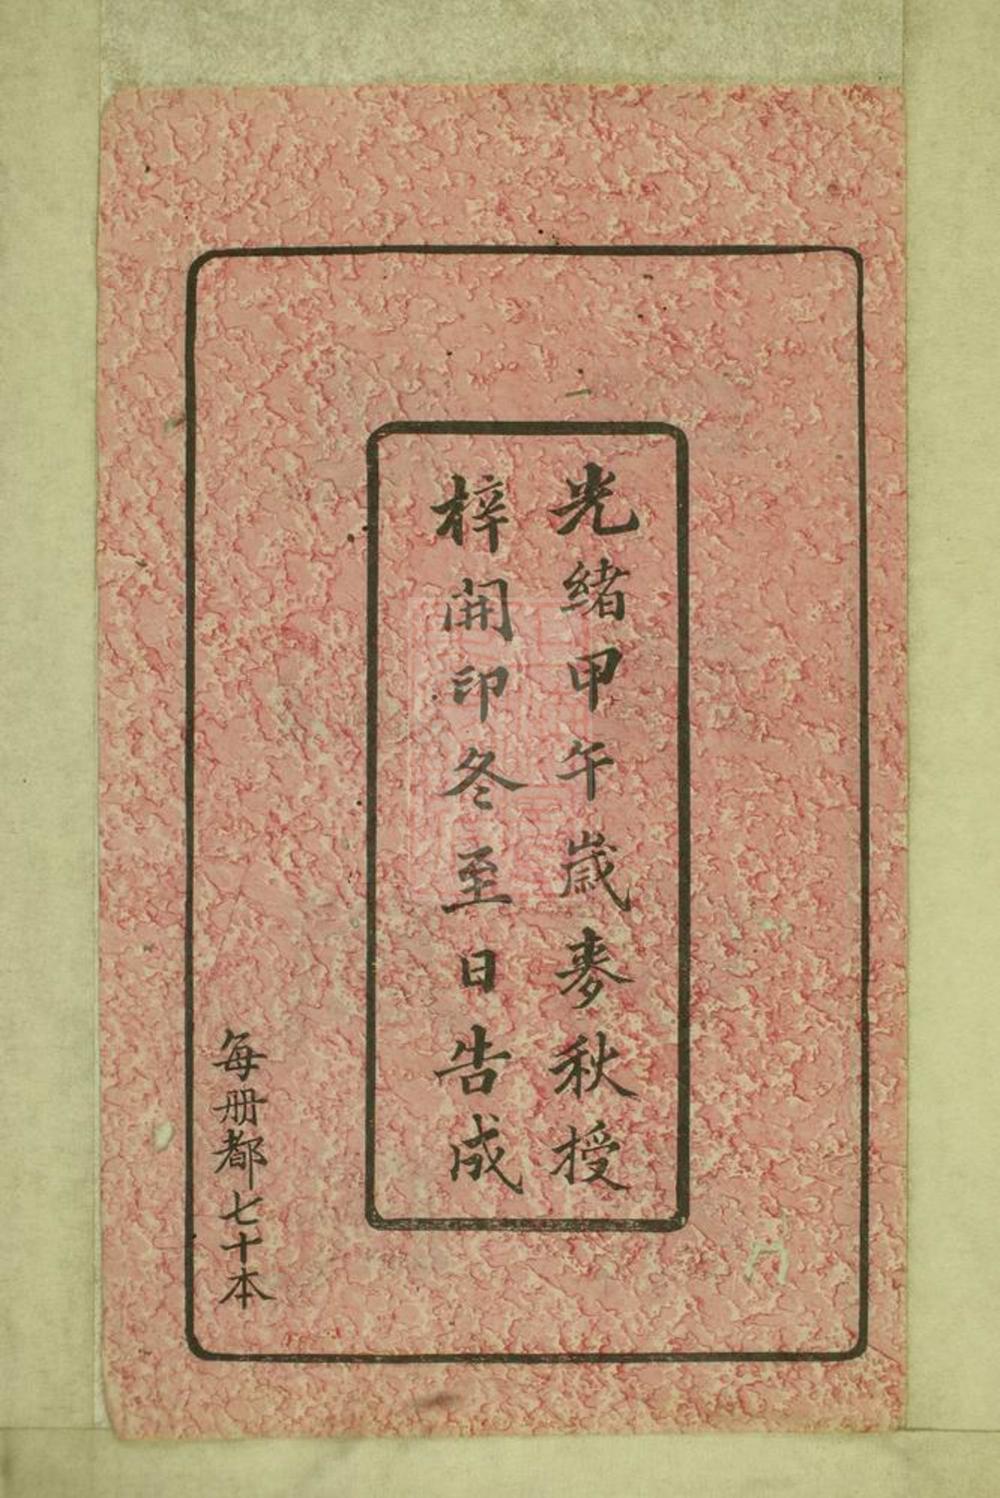 光緒甲午歲麥秋授
梓開印冬至日告成
每册都七十本